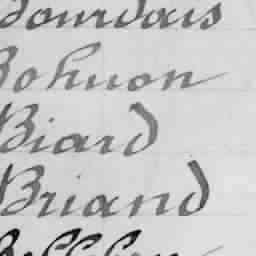 Bourdais
Bohuon
Biard
Briand